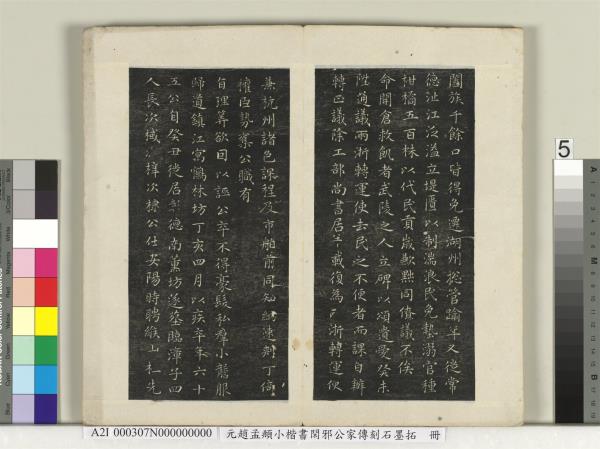 闔族千餘口皆得免遷湖州総管踰年又從常
德沚江泛溢立堤匱以制湍浪民免墊溺官種
柑橘五百株以代民貢歲歉㸃同僚議不俟
命開倉救飢者武陵之人立碑以頌遺愛癸未
陞通議兩浙轉運使去民之不便者而課自辦
轉正議除工部尚書居半載復為兩浙轉運使
兼杭州諸色課程及市舶前同知納速剌丁倚
權臣勢案公職有
自理筭欲因以誣公卒不得豪髮私羣小讋服
歸道鎮江寓鶴林坊丁亥四月以疾卒年六十
五公自癸丑徙居彰德南薰坊遂墓臨漳子四
人長次棫次梓次棣公仕安陽時聘緱山杜先
A2I 000307N000000000 元趙孟頫小楷書閑邪公家傳刻石墨拓 冊
5